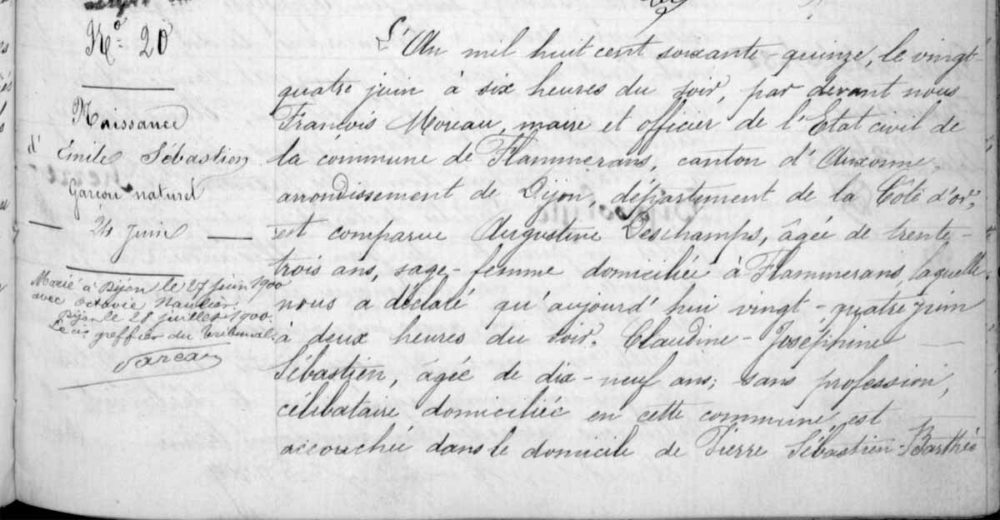 No. 20
Naissance
d'
Emile Sébastien
Garçon naturel
24 Juin
Marié à Dijon le 27 juin 1900
avec Octavie
Dijon le 28 juillet 1900.
Le cis greffier du Tribunal
L'An mil huit cent soixante-quinze, le vingt-
quatre juin à six heures du soir, par devant nous
François Moreau, maire et officier de l'Etat civil de
la commune de Flammerans, canton d'Auxonne,
arrondissement de Dijon, département de la Côte d'or,
est comparue Augustine Deschamps, âgée de trente-
trois ans, sage-femme domiciliée à Flammerans, laquelle
nous a déclaré qu'aujourd'hui vingt-quatre juin
à deux heures du soir. Claudine-Joséphine
Sébastien, âgée de dix-neuf ans; sans profession,
célibataire domiciliée en cette commune, est
accouchée dans le domicile de Pierre Sébastien-Barthé